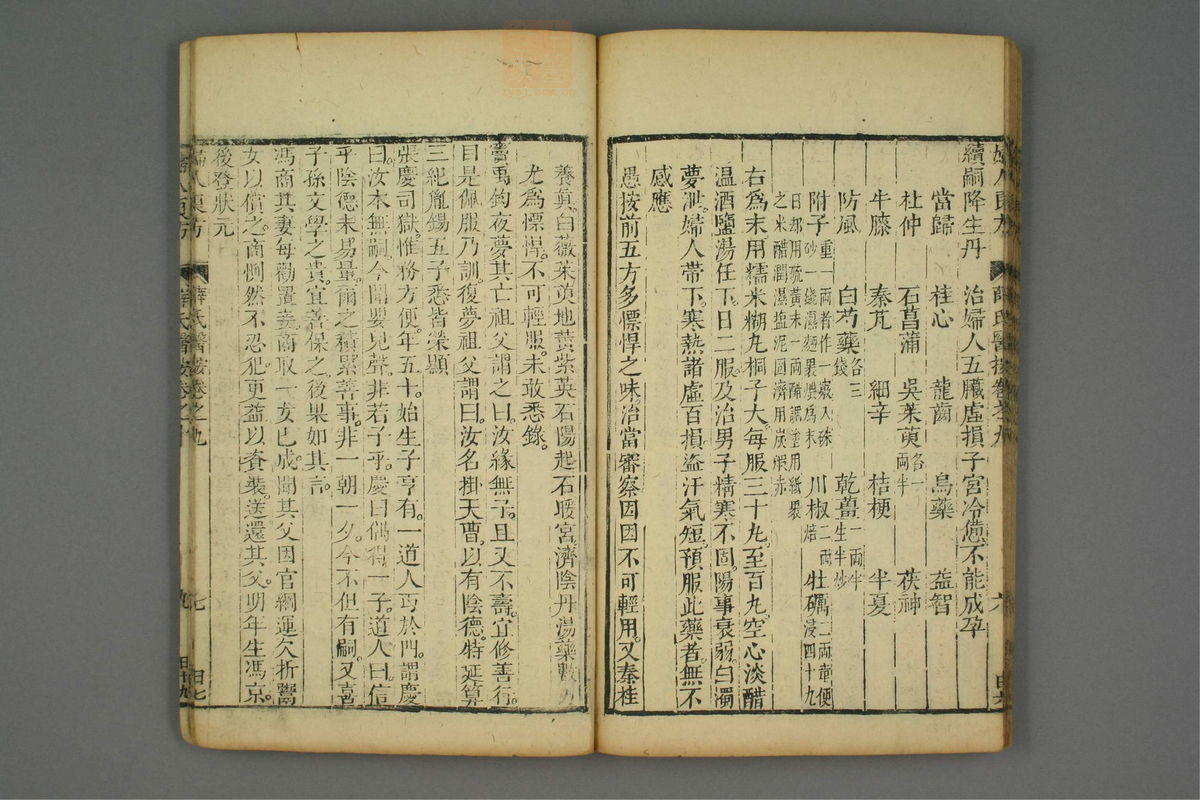 續嗣降生丹　治婦人五臟虛損子宮冷憊不能成孕
當歸　桂心　龍齒　烏藥　益智
杜仲　石菖蒲　吳茱萸各一兩半　茯神
牛膝　秦艽　細辛　桔梗　半夏
防風　白芍藥各三錢　乾薑一兩半生半炒
附子重一兩者作一竅入硃砂一錢濕麵裹煨爲末　川椒二兩焙　牡礪二兩童便浸四十九
日却用硫黃末一兩醋調塗用紙裹
之米醋潤濕鹽泥固濟用炭煅赤
右爲末用糯米糊丸桐子大每服三十丸至百丸空心淡醋
温酒鹽湯任下日二服及治男子精寒不固陽事衰弱白濁
夢泄婦人帶下寒熱諸虛百損盜汗氣短預服此藥者無不
感應
愚按前五方多慓悍之味治當審察因因不可輕用又秦桂
養眞白薇茱萸地黃紫英石陽起石暖宮濟陰丹湯藥數方
尤爲慓悍不可輕服未敢悉錄
竇禹鈞夜夢其亡祖父謂之曰汝緣無子且又不壽宜修善行
目是佩服乃訓復夢祖父謂曰汝名掛天曹以有陰德特延算
三紀胤錫五子悉皆榮顯
張慶司獄惟務方便年五十始生子亨有一道人丐於門謂慶
曰汝本無嗣今聞嬰兒聲非若子乎慶曰偶得一子道人曰信
乎陰德未易量爾之積累善事非一朝一夕今不但有嗣又喜
子孫文學之貴宜善保之後果如其言
馮商其妻每勸置妾商取一女已成聞其父因官綱運欠折鬻
女以償之商惻然不忍犯更益以奩裝送還其父明年生馮京
後登狀元
婦人良方　薛氏醫按卷之九　七